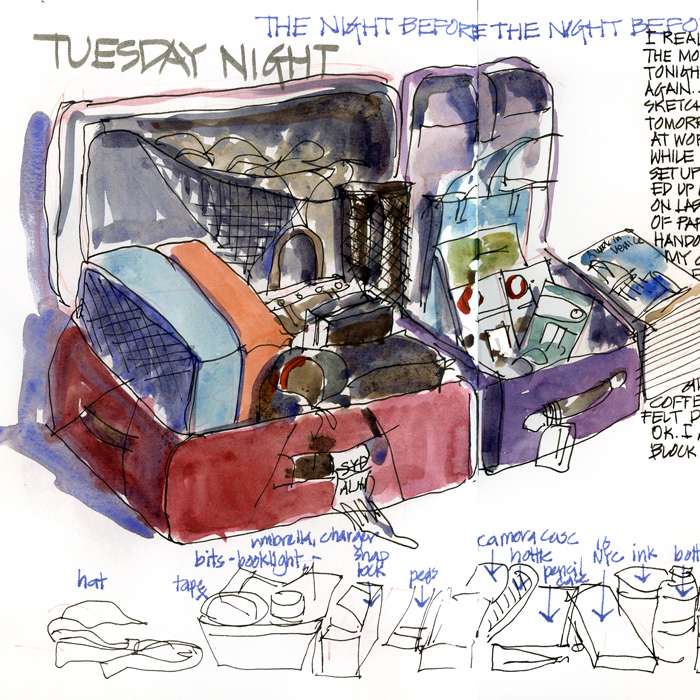 THE NIGHT BEFORE THE NIGHT BEFO
TUESDAY NIGHT
I REAL
THE MO
TONIGH
AGAIN..
SKETC
TOMORR
AT WOR
WHILE
SET UP
ED UP
ON LAS
OF PAP
HANDO
MY C
venice
COFFE
FELT P
OK. I
BLOCK
SYD
umbrella, charger
bits - booklight, -
snap
lock
camera case
bottle
pencil
case
NYC
ink
bott
hat
tape
pegs